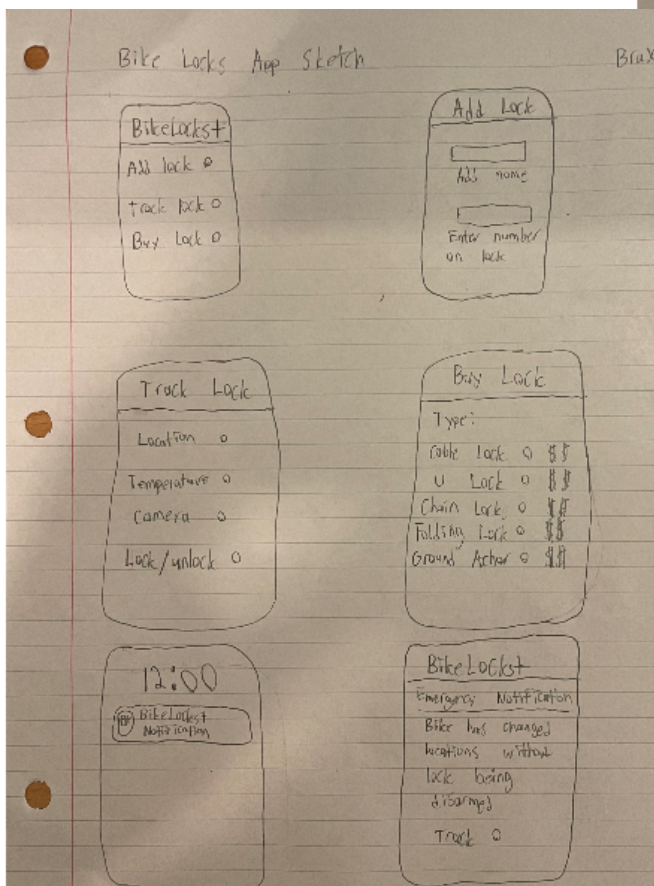 Bike Locks App Sketch
Brax
BikeLocks+
Add lock
Track lock
Buy Lock
Add Lock
Add name
Enter number
on lock
Track Lock
Location
Temperature
Camera
Lock/unlock
Buy Lock
Type:
Cable Lock $$
U Lock $$
Chain Lock $$
Folding Lock $$
Ground Achor $$
12:00
BikeLocks+
Notification
BikeLocks+
Emergency Notification
Bike has changed
locations without
lock being
disarmed
Track